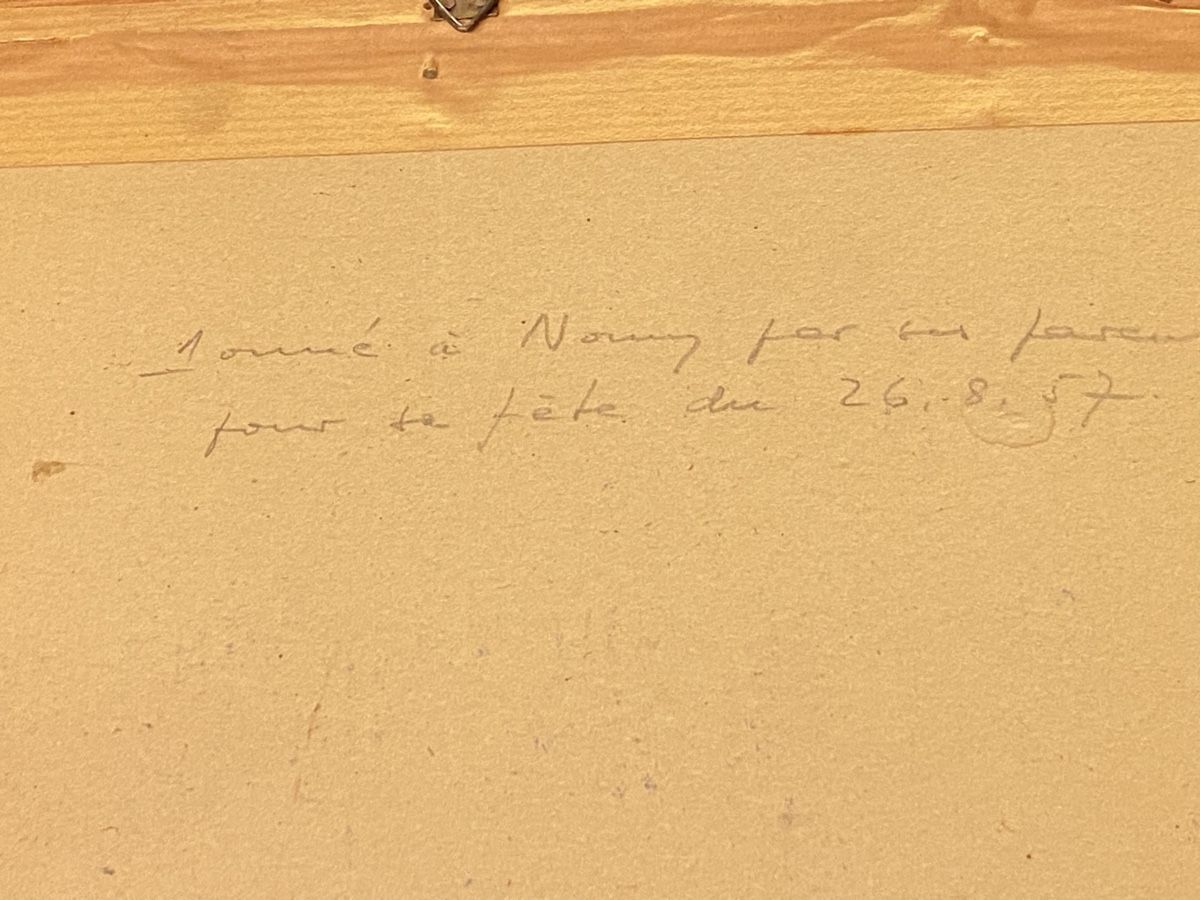 Donné à Nomy par ses paren
pour sa fête du 26.8.57.